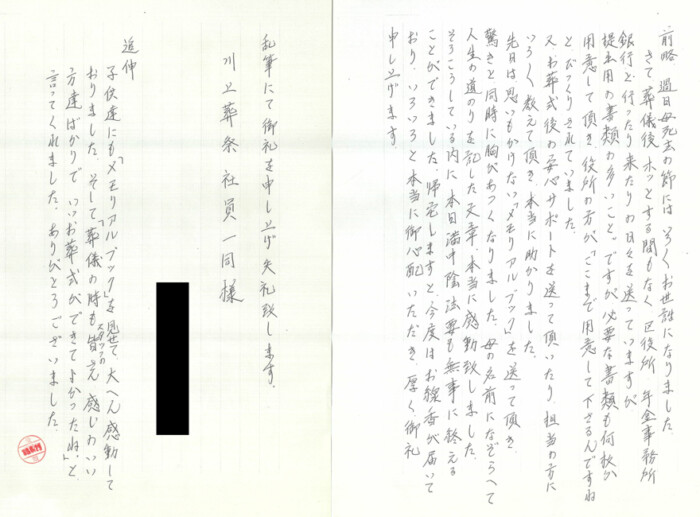 前略、過日母死去の節には、いろいろお世話になりました。
さて葬儀後ホッとする間もなく区役所 年金事務所
銀行と行ったり来たりの日々を送っていますが
提出用の書類の多いこと。ですが必要な書類も何枚か
用意して頂き、役所の方が「ここまで用意して下さるんですね
とびっくりされていました。
又、お葬式後の安心サポートを送って頂いたり、担当の方に
いろいろ教えて頂き、本当に助かりました。
先日は思いもかけない「メモリアルブック」を送って頂き、
驚きと同時に胸があつくなりました。母の名前になぞらへて
人生の道のりを記した文章、本当に感動致しました。
そうこうしている内に本日満中陰法要も無事に終える
ことができました。帰宅しますと、今度はお線香が届いて
おり、いろいろと本当に御心配いただき、厚く御礼
申し上げます。
乱筆にて御礼を申し上げ失礼致します。
川上葬祭社員一同様
追伸
子供達にも「メモリアルブック」を見せて、大へん感動して
おりました。そして「葬儀の時もスタッフの皆さん感じのいい
方達ばかりで、いいお葬式ができてよかったね」と
言ってくれました。ありがとうございました。